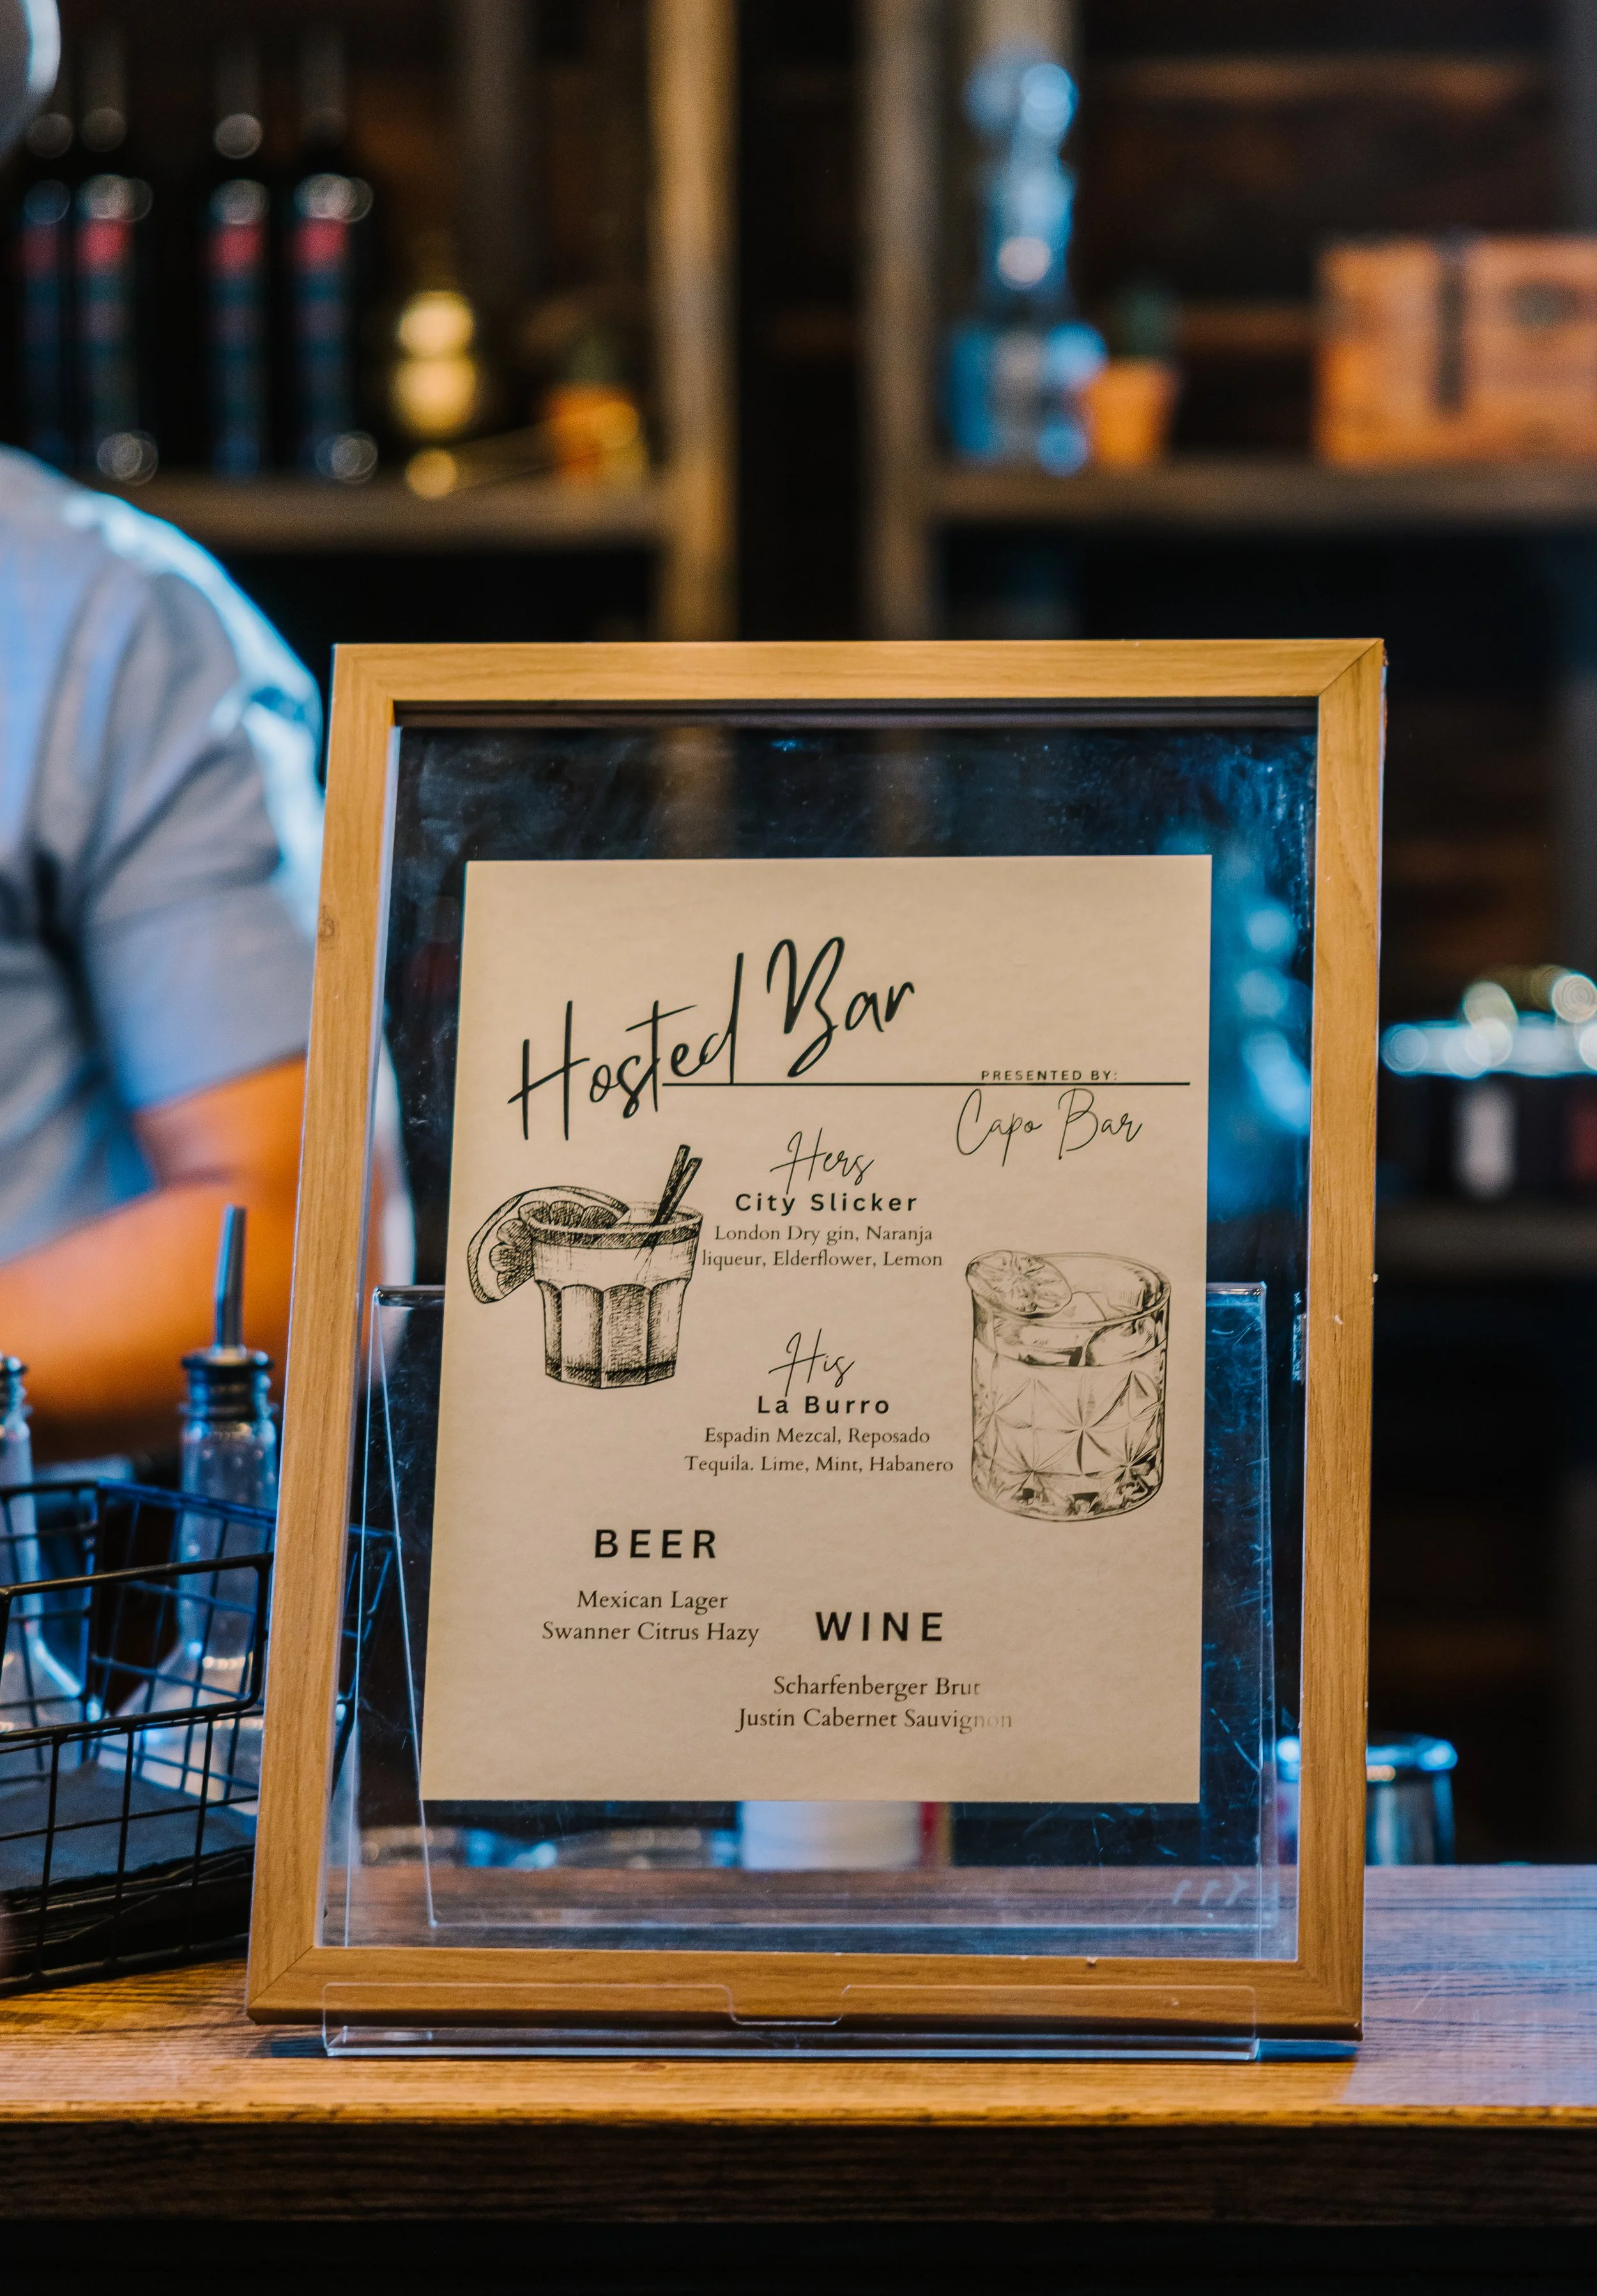 Hosted Bar
PRESENTED BY:
Capo Bar
Hers
City Slicker
London Dry gin, Naranja
liqueur, Elderflower, Lemon
His
La Burro
Espadin Mezcal, Reposado
Tequila. Lime, Mint, Habanero
BEER
Mexican Lager
Swanner Citrus Hazy
WINE
Scharfenberger Brut
Justin Cabernet Sauvignon